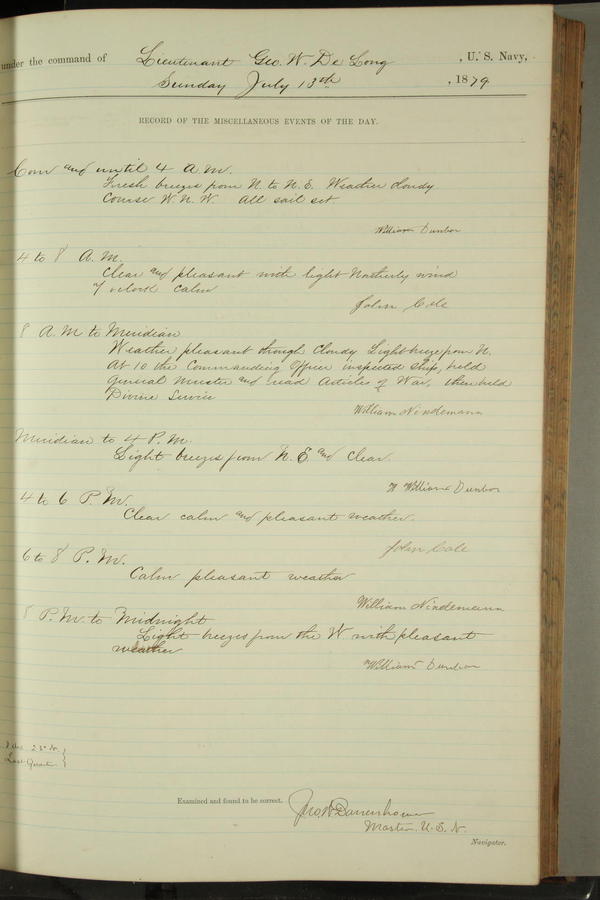 under the command of Lieutenant Geo. W. De Long, U. S. Navy,
Sunday July 13th, 1879
RECORD OF THE MISCELLANEOUS EVENTS OF THE DAY.
Com and until 4 A.M.
Fresh breezes from N. to N.E. Weather cloudy
Course W.N.W. All sail set
William Dunbar
4 to 8 A.M.
Clear and pleasant with light Northerly wind
7 o'clock calm
John Cole
8 A.M to Meridian
Weather pleasant though cloudy Light breeze from N.
At 10 the Commanding Officer inspected ship, held
general muster and read Articles of War, then held
Divine Service
William Nindemann
Meridian to 4 P.M.
Light breezes from N.E and clear.
W William Dunbar
4 to 6 P.M.
Clear calm and pleasant weather.
John Cole
6 to 8 P.M.
Calm pleasant weather
William Nindemann
8 P.M. to Midnight
Light breezes from the W with pleasant
weather
William Dunbar
23° N.
Last Quarter
Examined and found to be correct. Jno. W. Danenhower
Master, U.S.N.
Navigator.